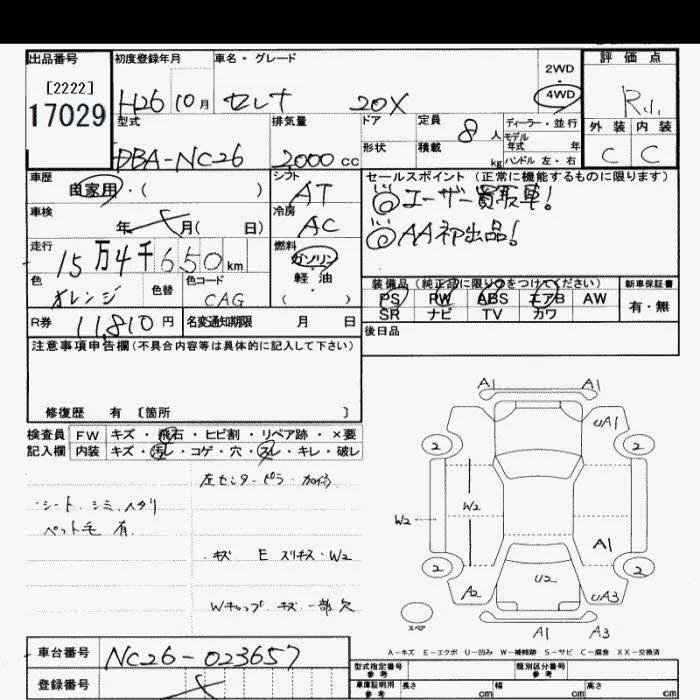 出品番号 初度登録年月 車名・グレード 2WD・4WD 評価点
[2222]
17029
H26 10月 セレナ 20X R.1.
型式 排気量 ドア 定員 8人 ディーラー・並行 外装 内装
モデル年式 年
DBA-NC26 2000cc 形状 積載 kg ハンドル 左・右 C C
車歴 自家用・( ) シフト AT セールスポイント (正常に機能するものに限ります)
◎ユーザー買取車!
車検 年 月( 日) 冷房 AC ◎AA初出品!
走行 15万4千650km 燃料 ガソリン・軽・油( )
色 オレンジ 色替 色コード CAG
装備品 (純正品に限り○をつけてください) 新車保証書
PS PW ABS エアB AW 有・無
SR ナビ TV カワ
R券 11,810円 名変通知期限 月 日 後日品
注意事項申告欄(不具合内容等は具体的に記入して下さい)
修復歴 有 〔箇所 〕
検査員 FW キズ・飛石・ヒビ割・リペア跡・×要
記入欄 内装 キズ・汚レ・コゲ・穴・スレ・キレ・破レ
左センターピラー 加修
・シート シミ、ヘタリ
ペット毛 有
・キズ E スリキズ・W2
Wキャップ キズ 一部欠
A1 A1
UA1
2 2
W2 W2
A1
2 2
A2 U2 UA3
スペア
A1 A3
A-キズ E-エクボ U-凹み W-補修跡 S-サビ C-腐食 XX-交換済
車台番号 NC26-023657
型式指定番号 参考 類別区分番号 参考
登録番号
車庫証明用 参考 長さ cm 幅 cm 高さ cm